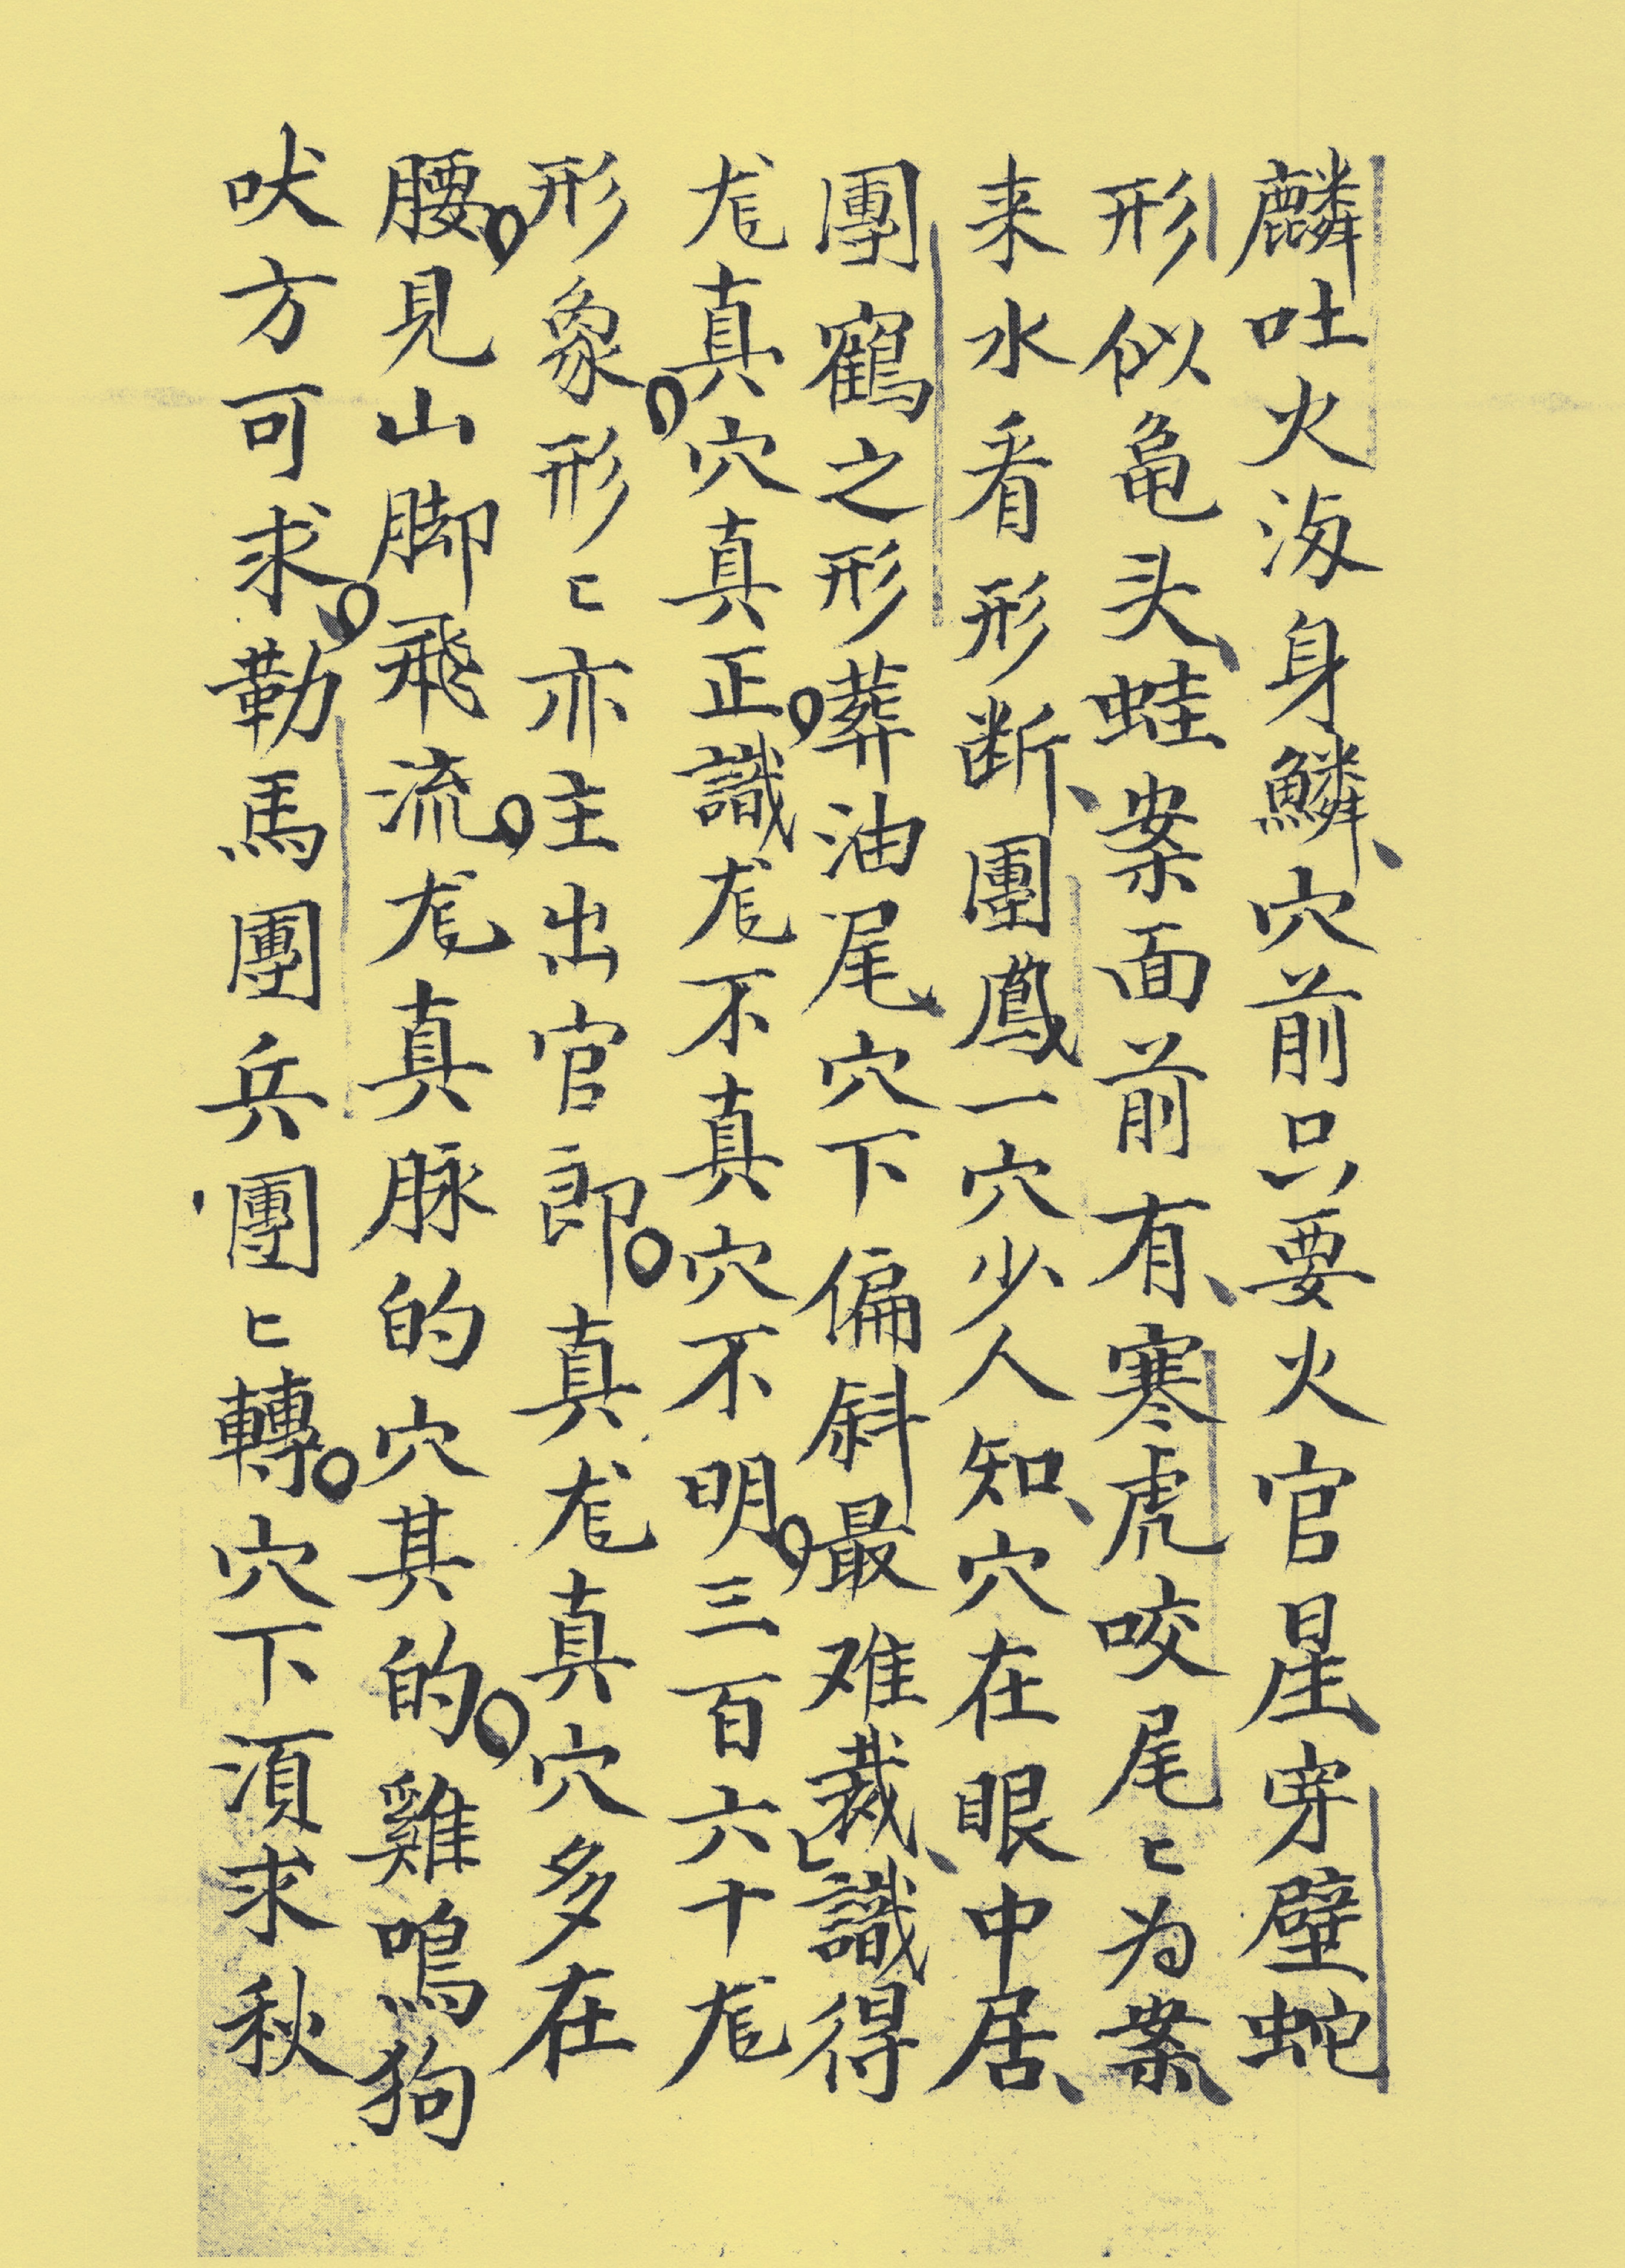 麟吐火海身鱗、穴前只要火官星、穿壁蛇
形似亀头、蛙案面前有、寒虎咬尾〻为案、
来水看形断、團鳳一穴少人知、穴在眼中居、
團鶴之形葬油尾、穴下偏斜最难裁、識得
尨真穴真正識尨不真穴不明。三百六十尨
形象。形〻亦主出官郎。真尨真穴多在
腰。見山脚飛流。尨真脉的穴其的。雞鳴狗
吠方可求。勒馬團兵團〻轉。穴下須求秋